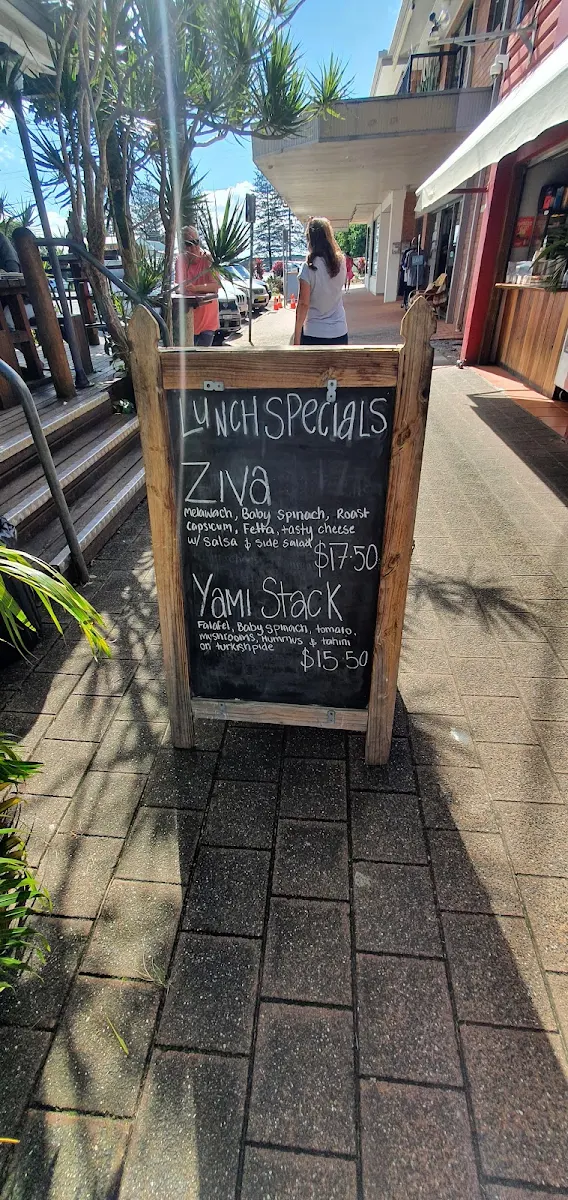 Lunch Specials
Ziva
Melawach, Baby spinach, Roast
capsicum, Fetta, tasty cheese
w/ salsa & side salad
$17.50
Yami Stack
Falafel, Baby spinach, tomato,
myshrooms, Hummus & tahini
on turkish pide
$15.50